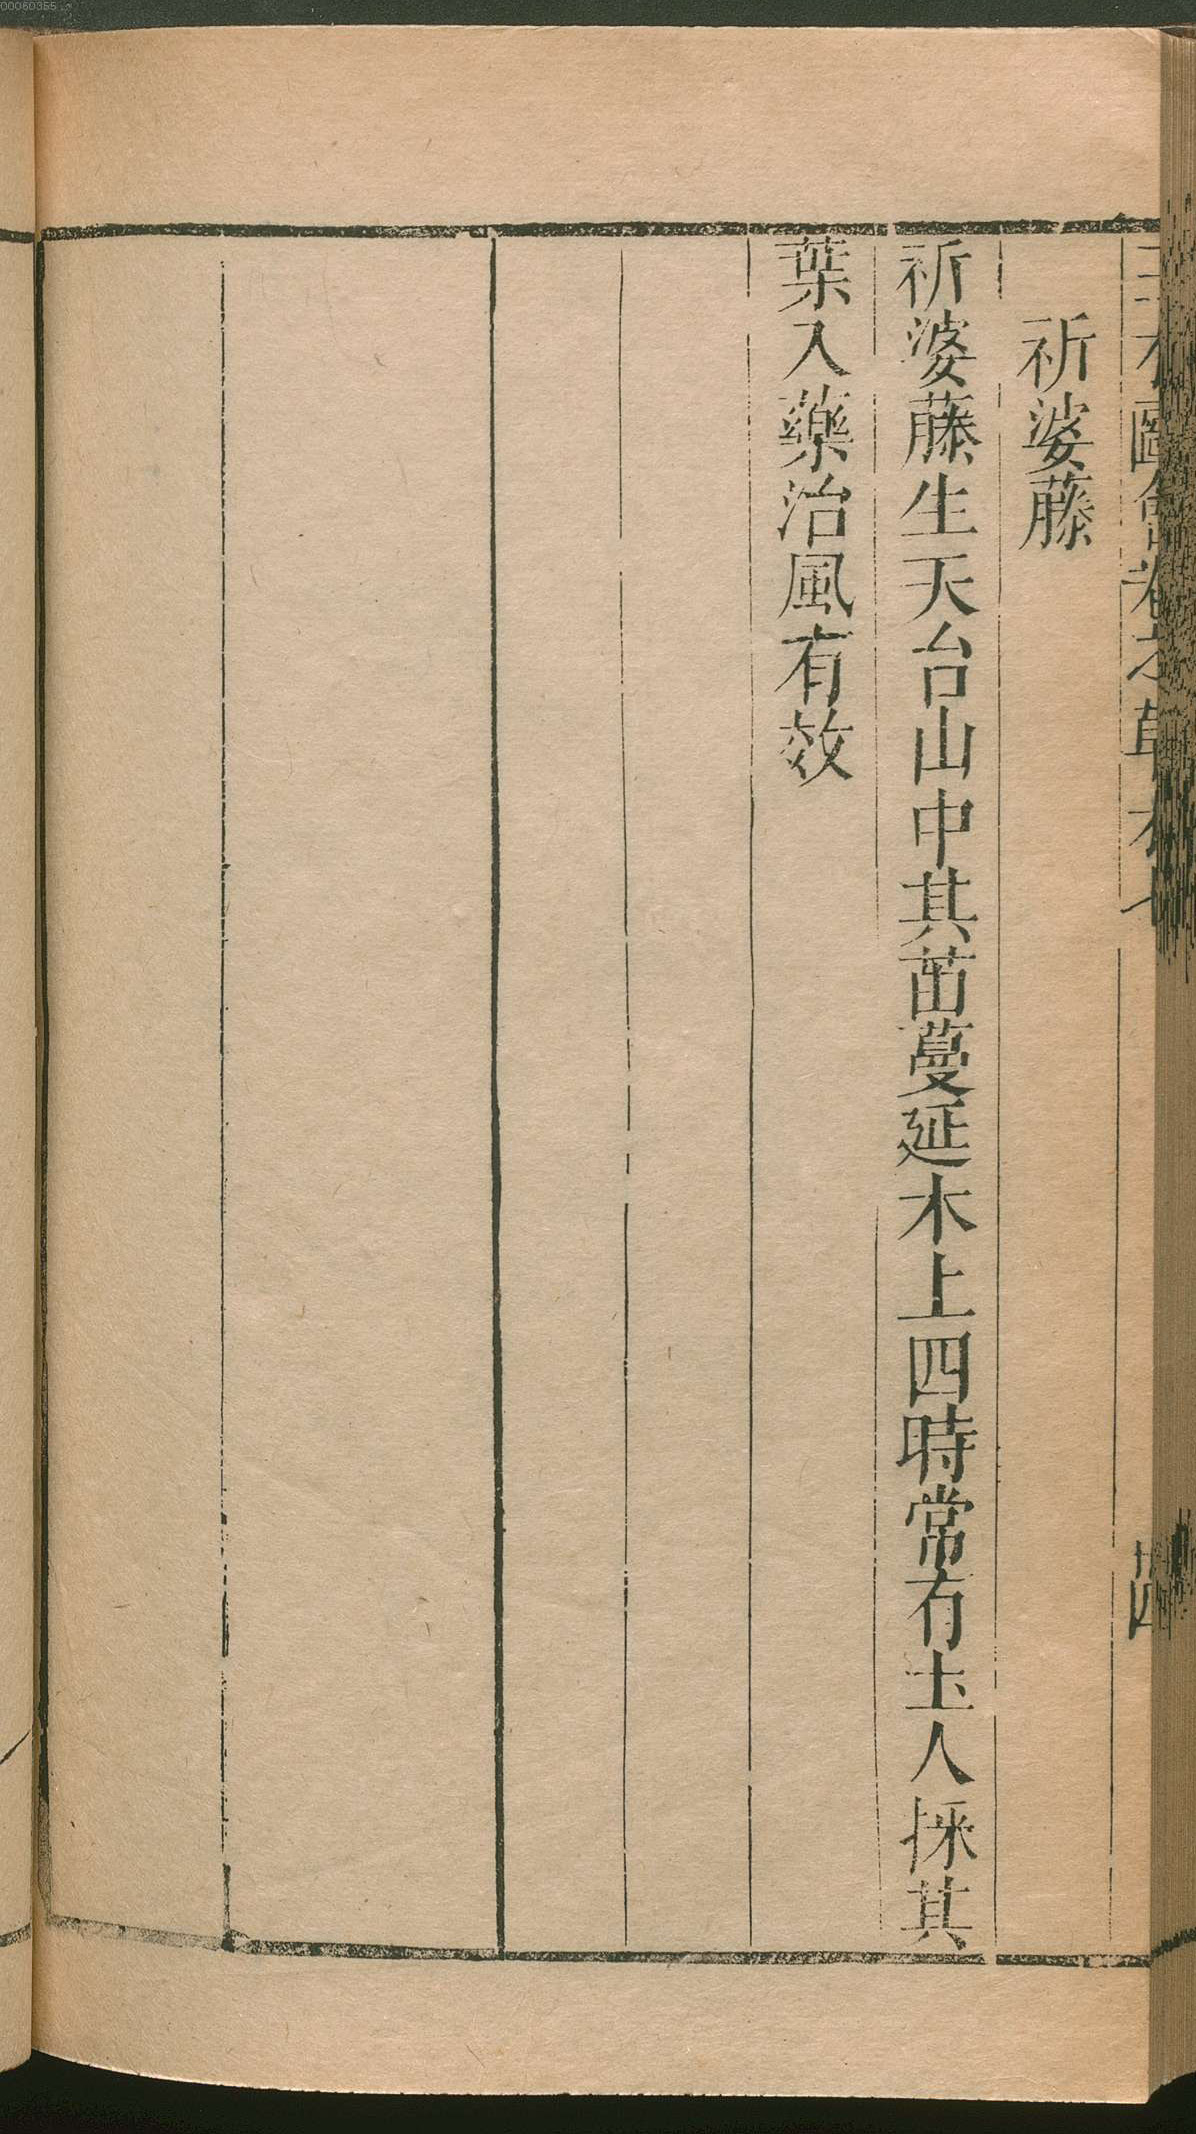 00060355
祈婆藤
祈婆藤生天台山中其苗蔓延木上四時常有土人採其
葉入藥治風有效